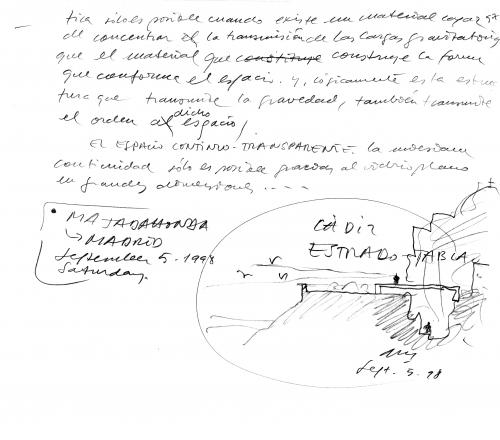 tica sólo es posible cuando existe un material capaz
de concentrar en él la transmisión de las cargas gravitatorias,
que el material que constituye construye la forma
que conforma el espacio. y, lógicamente es la estruc
tura que transmite la gravedad, también transmite
el orden al dicho espacio.
EL ESPACIO CONTINUO-TRANSPARENTE. la
continuidad sólo es posible gracias al vidrio plano
en grandes dimensiones ----
• MAJADAHONDA
↳ MADRID
September 5. 1998
Saturday.
CÁDIZ
ESTRADO-TABLA
Sept. 5. 98